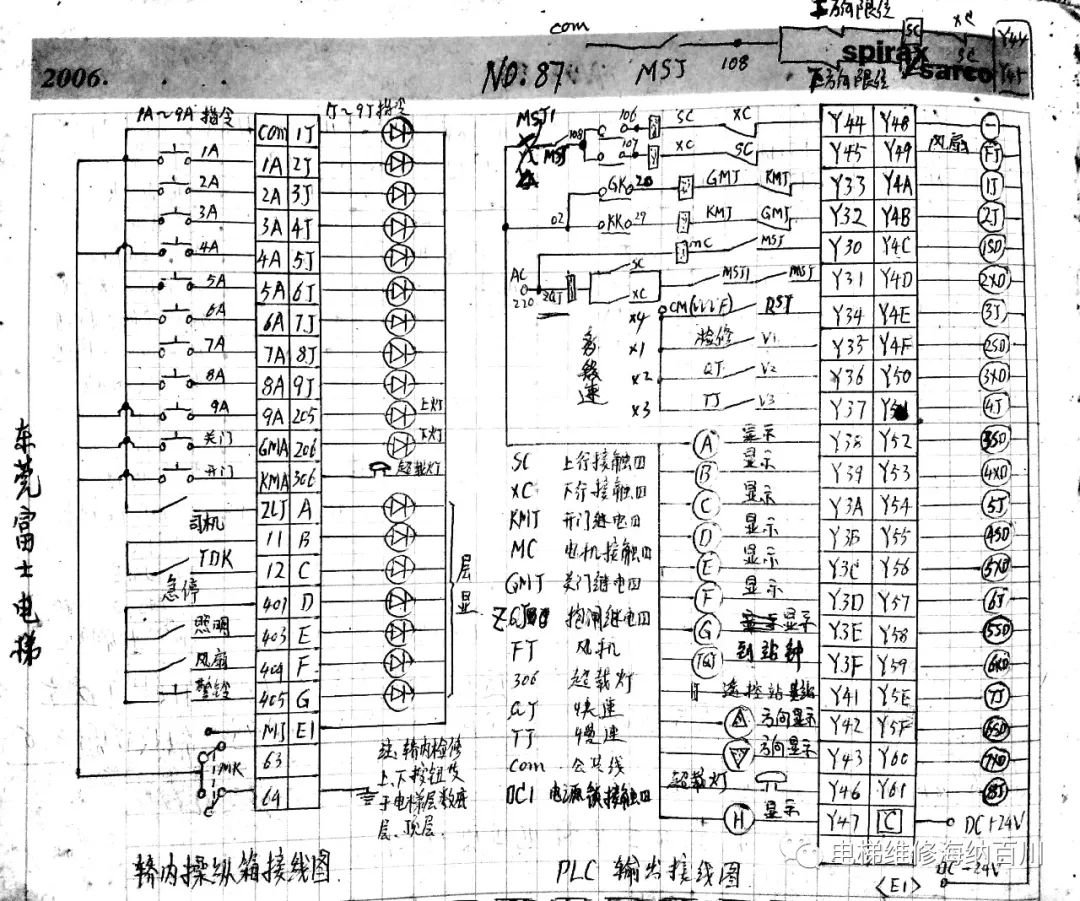 com
上方向限位
SC
XC
Y44
2006.
NO: 87
MSJ
108
spirax
sarco
SC
Y45
下方向限位
1A~9A 指令
1J~9J 指令
1A
2A
3A
4A
5A
6A
7A
8A
9A
关门
开门
司机
TDK
急停
照明
风扇
警铃
MK
com 1J
1A 2J
2A 3J
3A 4J
4A 5J
5A 6J
6A 7J
7A 8J
8A 9J
9A 205
GMA 206
KMA 306
ZLJ A
11 B
12 C
401 D
403 E
404 F
405 G
MJ E1
63
64
上灯
下灯
超载灯
层显
注: 轿内检修
上、下按钮及
于电梯层数底
层、顶层.
轿内操纵箱接线图
东莞富士电梯
MSJ1
108
MSJ
106
SC
XC
107
XC
SC
GK 20
GMJ
KMJ
02
KK 29
KMJ
GMJ
MC
MSJ
AC
220
ZGJ
SC
XC
MSJ1
MSJ
X4
X1
检修
V1
X2
QJ
V2
X3
TJ
V3
多段速
Y44 Y48
Y45 Y49
Y33 Y4A
Y32 Y4B
Y30 Y4C
Y31 Y4D
Y34 Y4E
Y35 Y4F
Y36 Y50
Y37 Y51
Y38 Y52
Y39 Y53
Y3A Y54
Y3B Y55
Y3C Y56
Y3D Y57
Y3E Y58
Y3F Y59
Y41 Y5E
Y42 Y5F
Y43 Y60
Y46 Y61
Y47 C
风扇
FJ
1J
2J
1SD
2XD
3J
2SD
3XD
4J
3SD
4XD
5J
4SD
5XD
6J
5SD
6XD
7J
6SD
7XD
8J
A 显示
B 显示
C 显示
D 显示
E 显示
F 显示
G 显示
到站钟
方向显示
方向显示
超载灯
H 显示
SC 上行接触口
XC 下行接触口
KMJ 开门继电口
MC 电机接触口
GMJ 关门继电口
ZGJ 抱闸继电口
FJ 风机
306 超载灯
QJ 快速
TJ 慢速
com 公共线
DC1 电源锁接触口
DC+24V
DC-24V
<E1>
PLC 输出接线图
电梯维修海纳百川